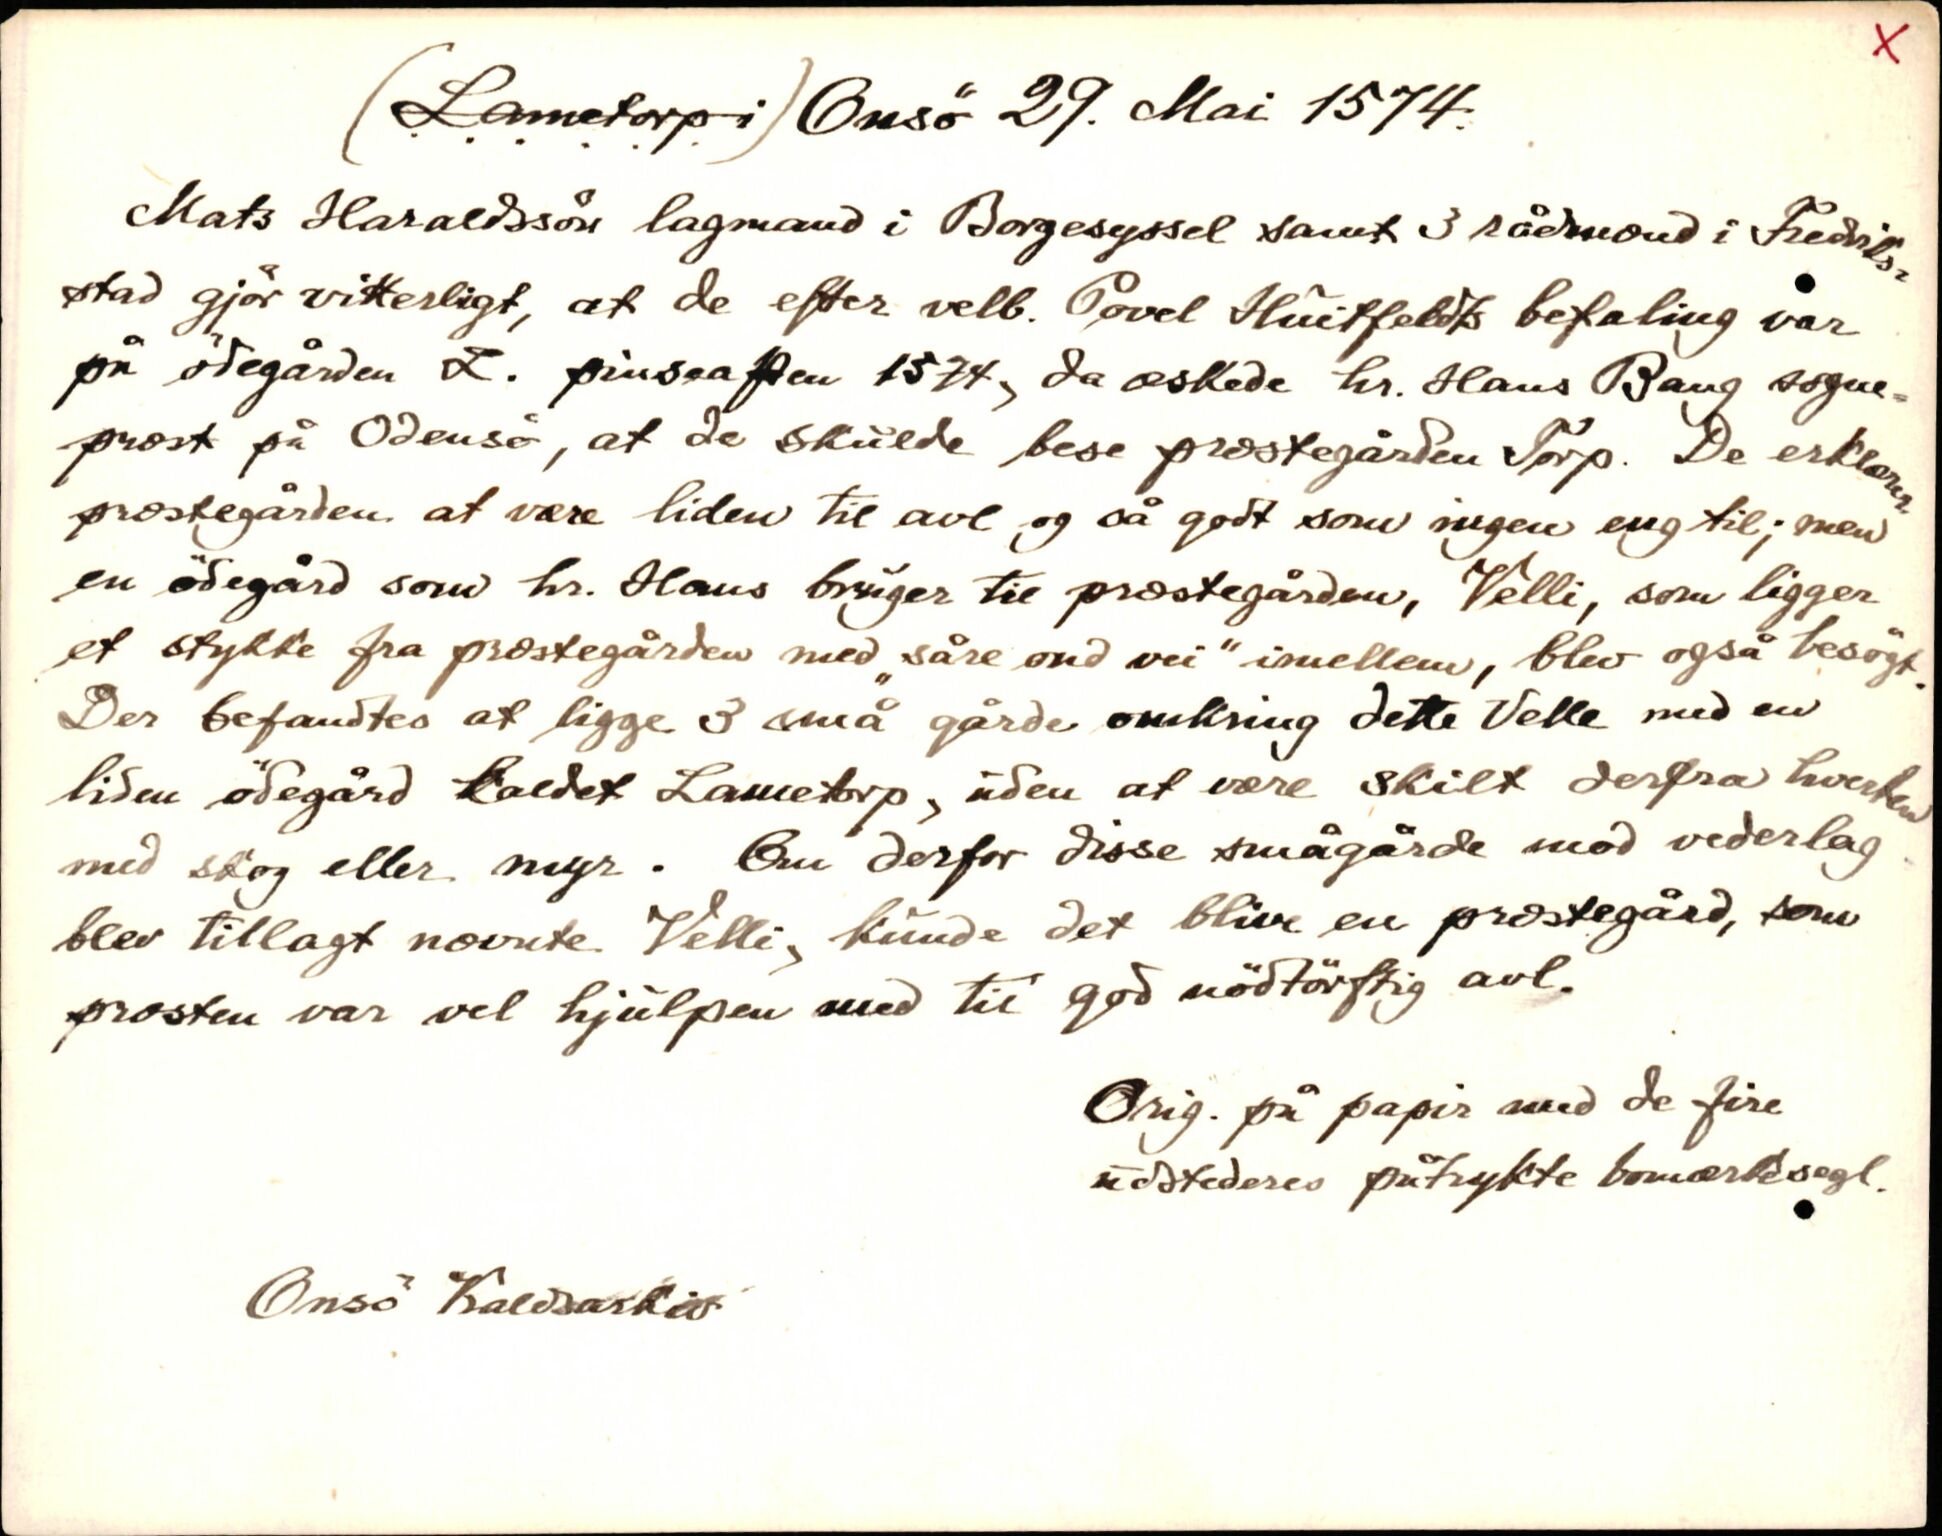 X
(Lametorp i) Onsö 29. Mai 1574.
Mats Haraldssön lagmand i Borgesyssel samt 3 rådmænd i Fredriks-
stad gjör vitterligt, at de efter velb. Povel Huitfeldts befaling var
på ödegården L. pinseaften 1574, da æskede hr. Hans Bang sogne-
præst på Odensö, at de skulde bese præstegården Torp. De erklærer
præstegården at være liden til avl og så godt som ingen eng til; men
en ödegård som hr. Hans bruger til præstegården, Velli, som ligger
et stykke fra præstegården med "såre ond vei" imellem, blev også besögt.
Der befandtes at ligge 3 "små" gårde omkring dette Velle med en
liden ödegård kaldet Lametorp, uden at være skilt derfra hverken
med skog eller myr. Om derfor disse smågårde mod vederlag
blev tillagt nævnte Velli, kunde det blive en præstegård, som
præsten var vel hjulpen med til god nödtörftig avl.
Orig. på papir med de fire
udstederes påtrykte bomærkesegl.
Onsö Kaldsarkiv